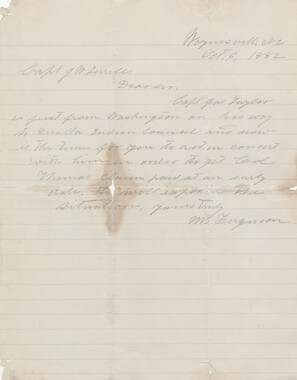 Waynesville, N.C.
Oct. 6, 1882
Capt J W Terrell
Dear sir,
Capt. Jas Taylor
is just from Washington on his way
to Qualla Indian Council and now
is the time for you to act in concert
with him in order to get Col
Thomas Claim paid at an early
date. He will explain the
situation, yours truly
W.B. Ferguson